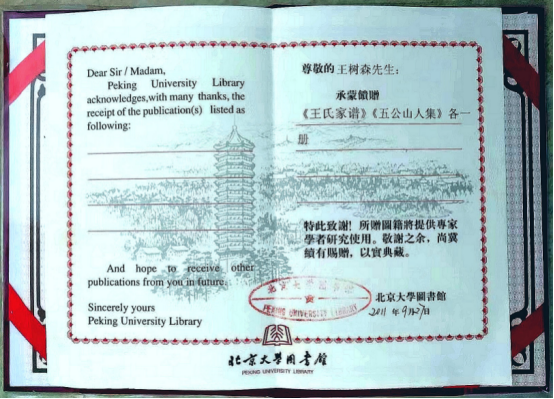 Dear Sir / Madam,
Peking University Library
acknowledges,with many thanks, the
receipt of the publication(s) listed as
following:
And hope to receive other
publications from you in future.
Sincerely yours
Peking University Library
尊敬的王树森先生:
承蒙饋贈
《王氏家谱》《五公山人集》各一
册
特此致謝!所贈圖籍將提供專家
學者研究使用。敬謝之余,尚冀
續有賜贈,以實典藏。
北京大學圖書館
2011年9月27日
北京大學圖書館
PEKING UNIVERSITY LIBRARY
北京大学图书馆
PEKING UNIVERSITY LIBRARY